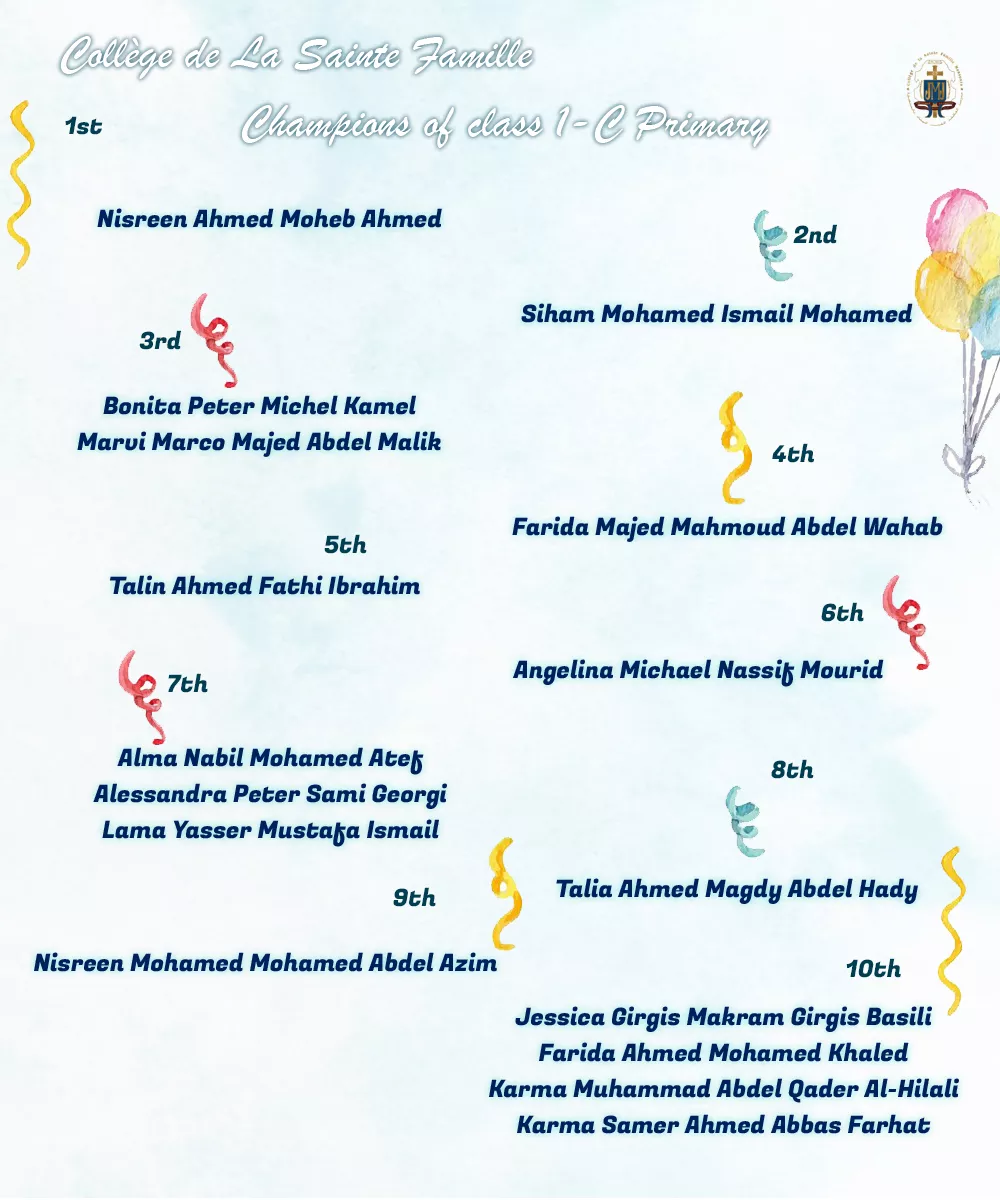 Collège de La Sainte Famille
Champions of class 1-C Primary
1st
Nisreen Ahmed Moheb Ahmed
2nd
Siham Mohamed Ismail Mohamed
3rd
Bonita Peter Michel Kamel
Marvi Marco Majed Abdel Malik
4th
Farida Majed Mahmoud Abdel Wahab
5th
Talin Ahmed Fathi Ibrahim
6th
Angelina Michael Nassif Mourid
7th
Alma Nabil Mohamed Atef
Alessandra Peter Sami Georgi
Lama Yasser Mustafa Ismail
8th
Talia Ahmed Magdy Abdel Hady
9th
Nisreen Mohamed Mohamed Abdel Azim
10th
Jessica Girgis Makram Girgis Basili
Farida Ahmed Mohamed Khaled
Karma Muhammad Abdel Qader Al-Hilali
Karma Samer Ahmed Abbas Farhat